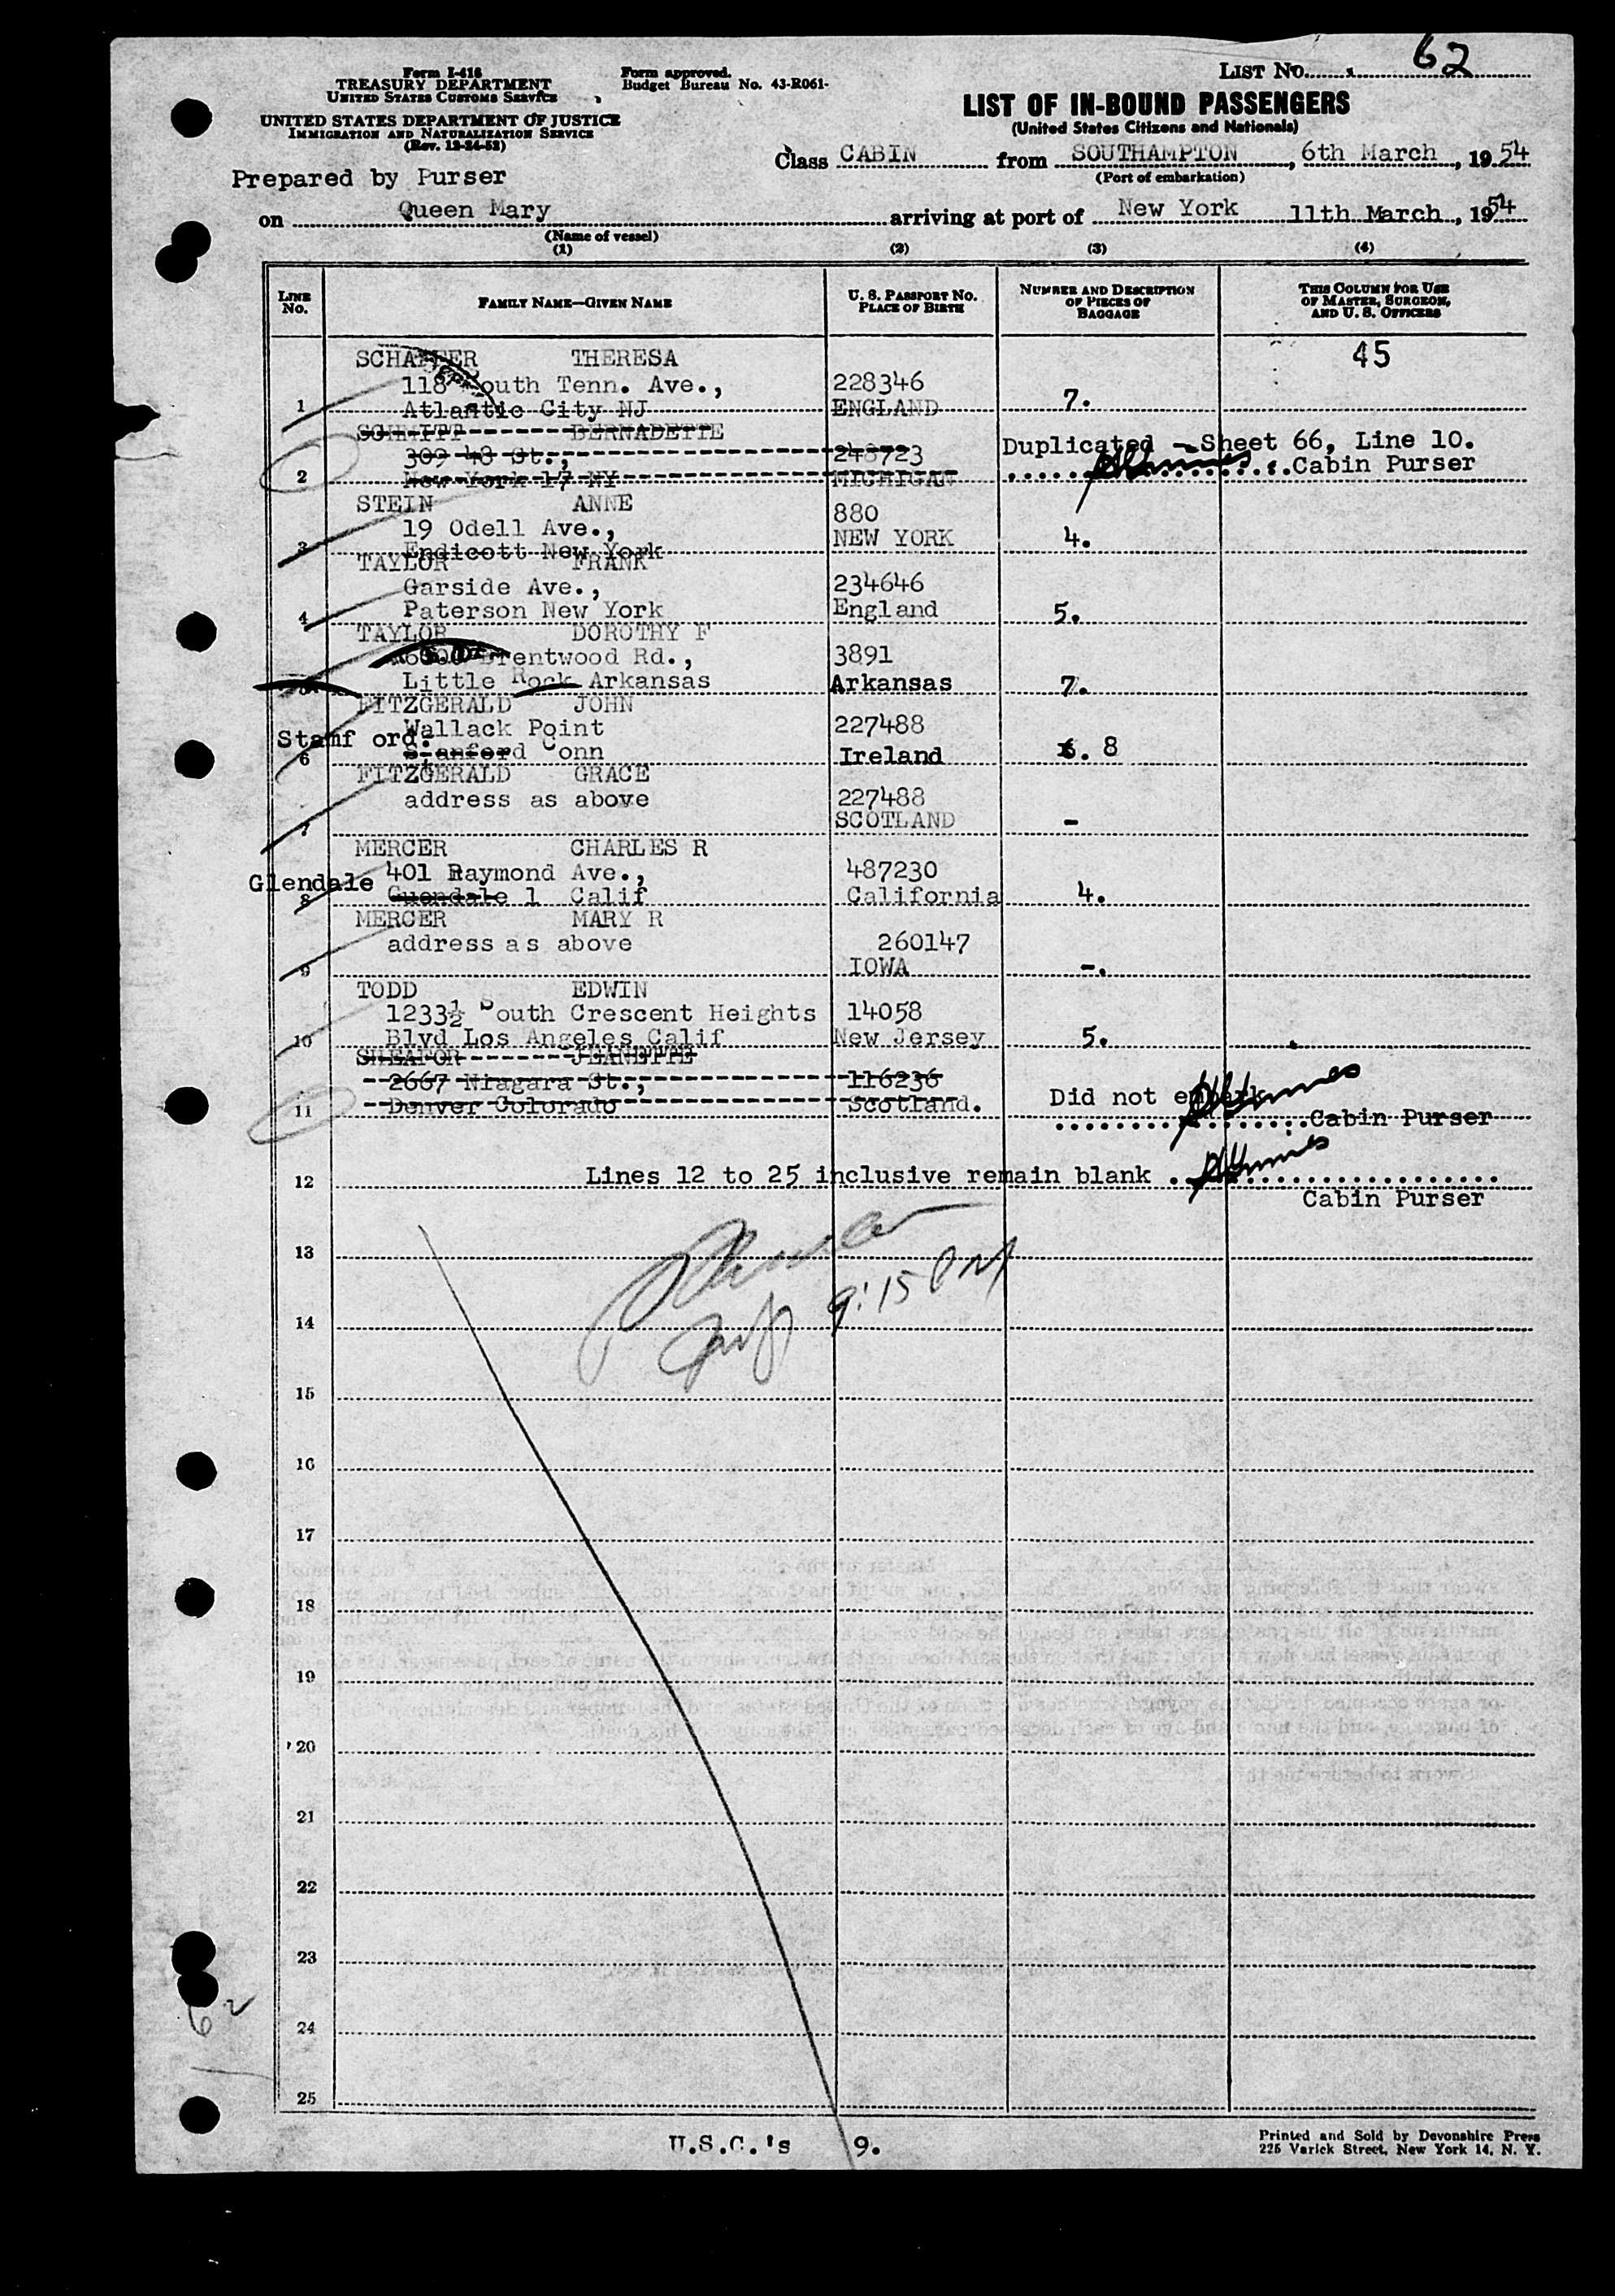 LIST NO. 62
Form I-418
TREASURY DEPARTMENT
UNITED STATES CUSTOMS SERVICE
Form approved.
Budget Bureau No. 43-R061-
UNITED STATES DEPARTMENT OF JUSTICE
IMMIGRATION AND NATURALIZATION SERVICE
(Rev. 12-24-52)
LIST OF IN-BOUND PASSENGERS
(United States Citizens and Nationals)
Class CABIN from SOUTHAMPTON, 6th March, 1954
(Port of embarkation)
Prepared by Purser
on Queen Mary arriving at port of New York 11th March, 1954
(Name of vessel)
(1) (2) (3) (4)
LINE NO. FAMILY NAME—GIVEN NAME U. S. PASSPORT NO. PLACE OF BIRTH NUMBER AND DESCRIPTION OF PIECES OF BAGGAGE THIS COLUMN FOR USE OF MASTER, SURGEON, AND U. S. OFFICERS
SCHAFFER THERESA 45
118 South Tenn. Ave., 228346
1 Atlantic City NJ ENGLAND 7.
SCHMITT BERNADETTE
309 48 St., 248723 Duplicated - Sheet 66, Line 10.
2 New York 17 NY MICHIGAN Cabin Purser
STEIN ANNE
19 Odell Ave., 880
3 Endicott New York NEW YORK 4.
TAYLOR FRANK
Garside Ave., 234646
4 Paterson New York England 5.
TAYLOR DOROTHY F
Brentwood Rd., 3891
5 Little Rock Arkansas Arkansas 7.
FITZGERALD JOHN
Wallack Point 227488
Stamf ord:
6 Stanford Conn Ireland 6. 8
FITZGERALD GRACE
address as above 227488
7 SCOTLAND -
MERCER CHARLES R
401 Raymond Ave., 487230
Glendale
8 Guendale 1 Calif California 4.
MERCER MARY R
address as above 260147
9 IOWA -.
TODD EDWIN
1233½ South Crescent Heights 14058
10 Blvd Los Angeles Calif New Jersey 5.
SHEAFOR JEANETTE
2667 Niagara St., 116236
11 Denver Colorado Scotland. Did not embark
Cabin Purser
12 Lines 12 to 25 inclusive remain blank
Cabin Purser
13
9:15 PM
14
15
16
17
18
19
20
21
22
23
24
62
25
U.S.C.'s 9.
Printed and Sold by Devonshire Press
225 Varick Street, New York 14, N. Y.